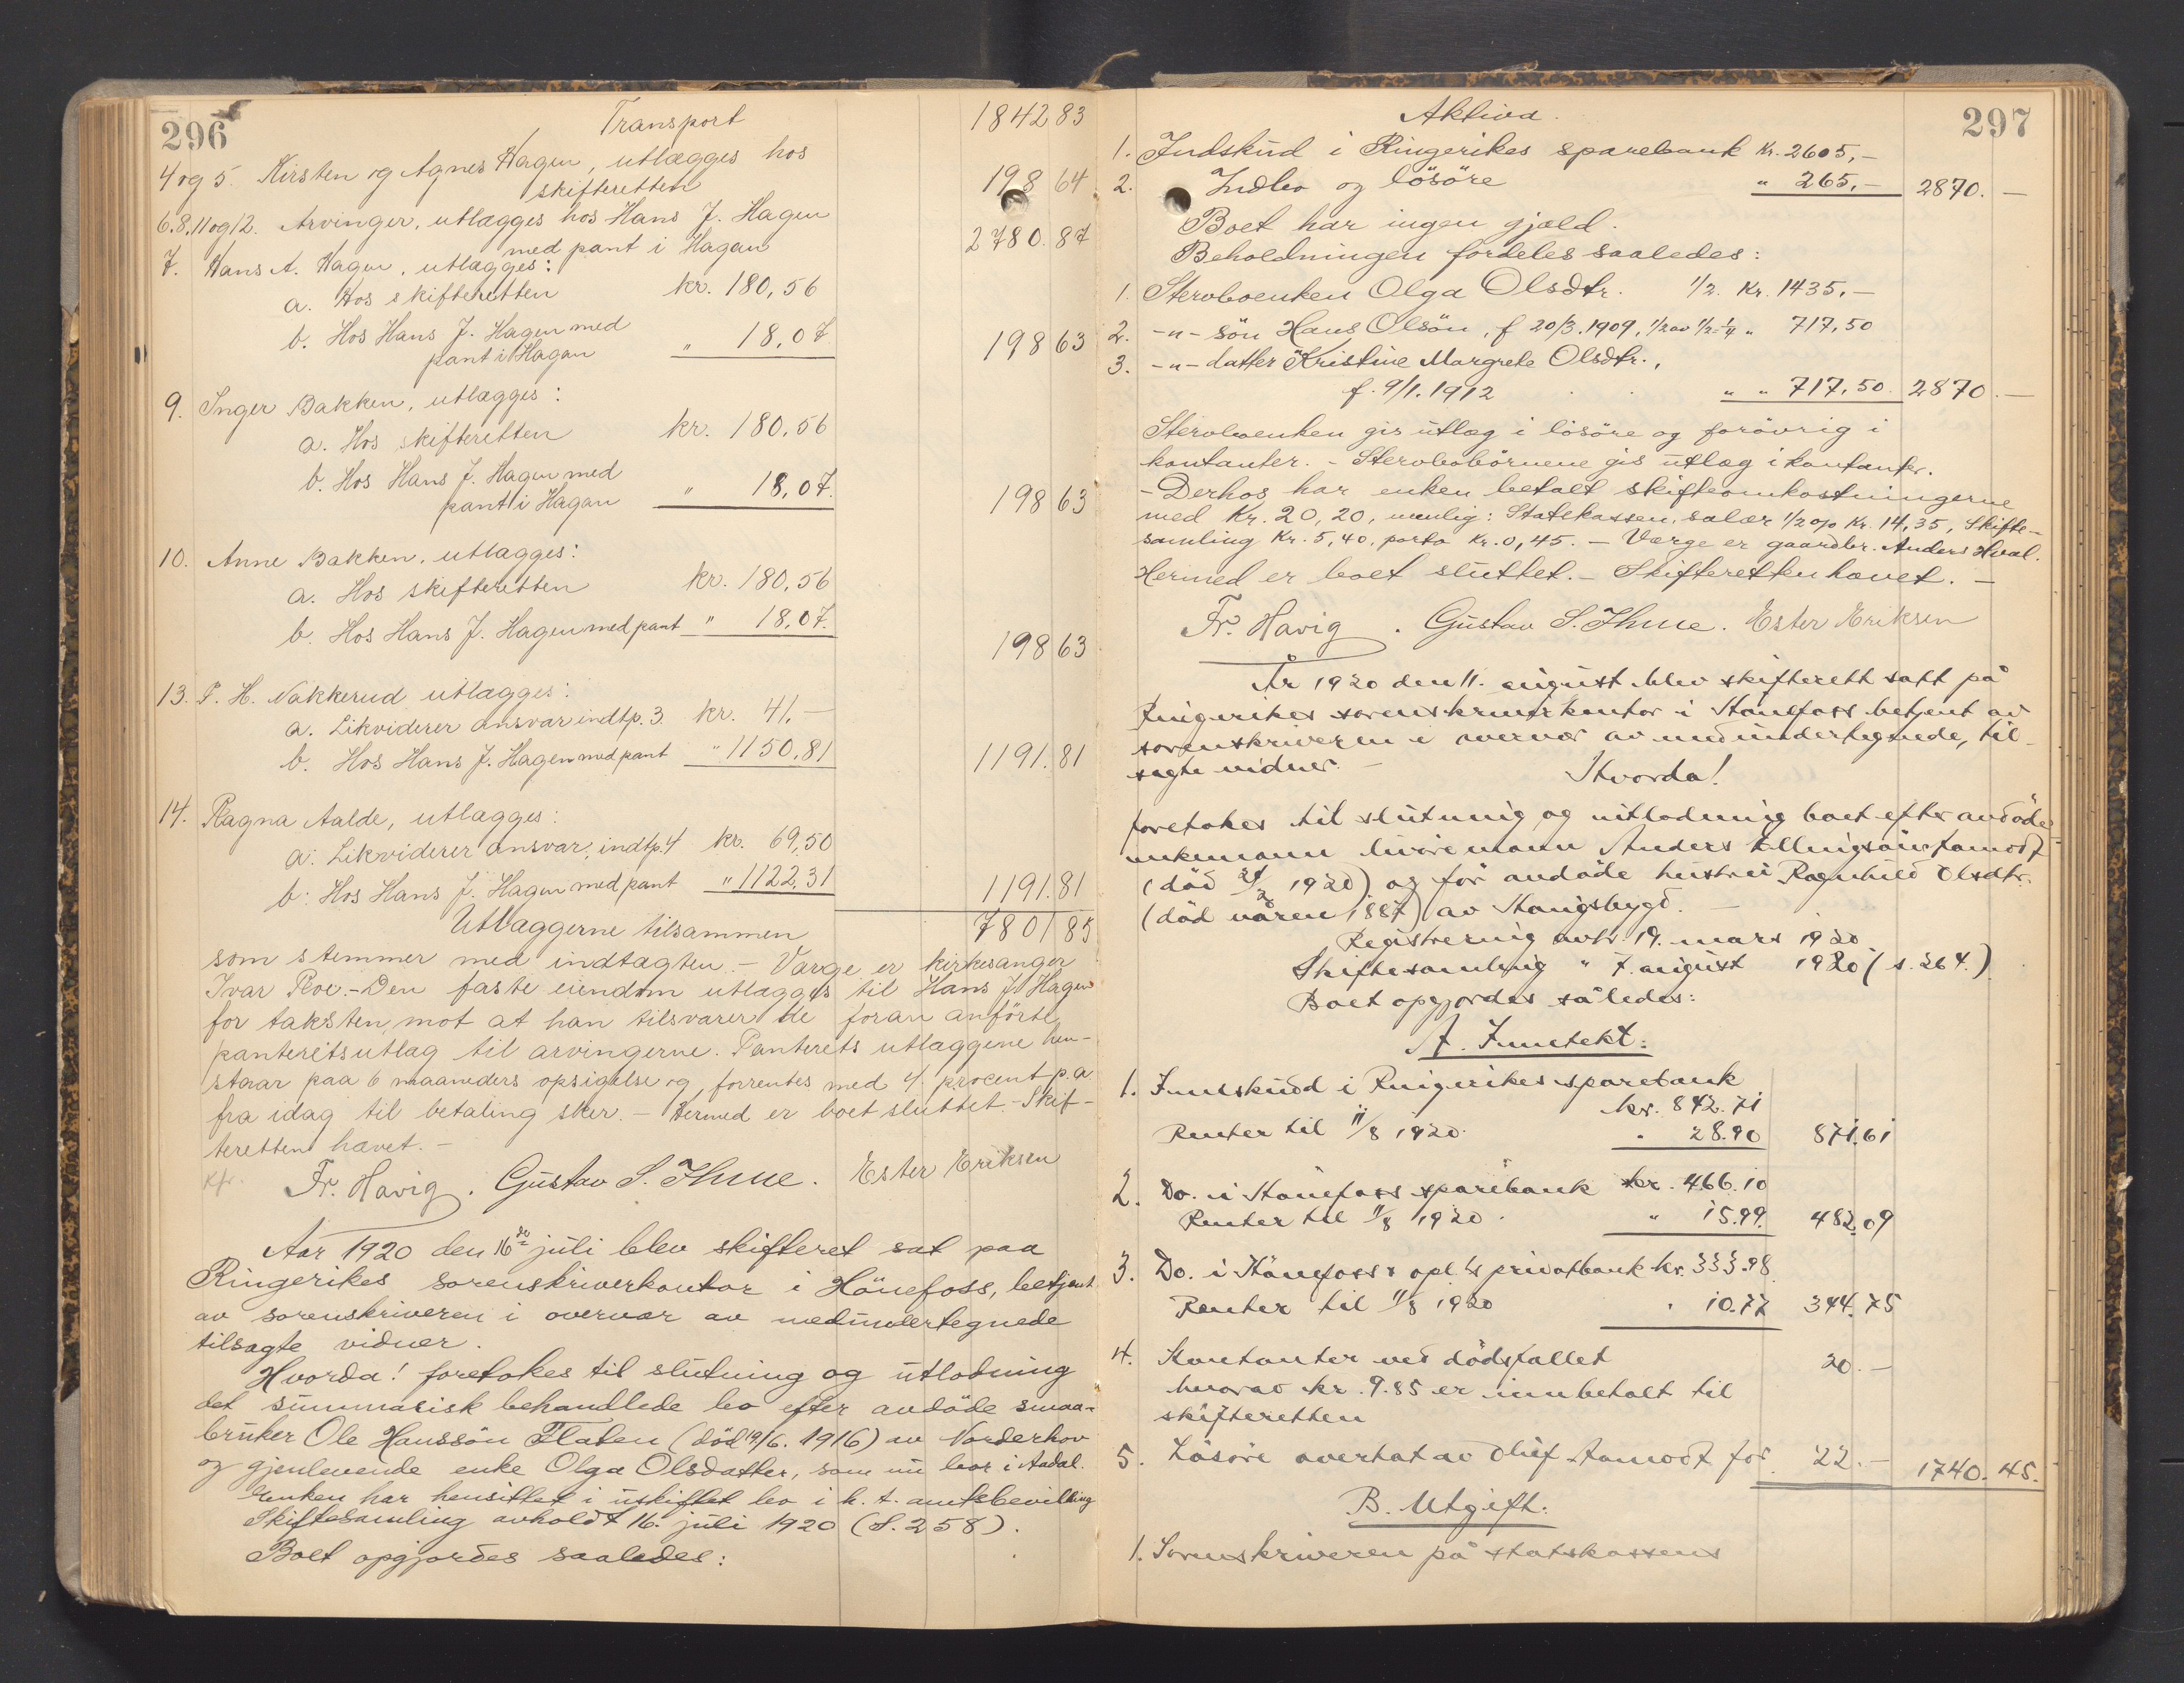 296
Transport 1842 83
4 og 5. Kirsten og Agnes Hagen, utlægges hos
skifteretten 198 64
6.8.11og12. Arvinger, utlægges hos Hans J. Hagen
med pant i Hagan 2780.87
7. Hans A. Hagen, utlægges:
a. Hos skifteretten kr. 180,56
b. Hos Hans J. Hagen med
pant i Hagan " 18,07 198 63
9. Inger Bakken, utlægges:
a. Hos skifteretten kr. 180,56
b. Hos Hans J. Hagen med
pant i Hagan " 18,07. 198 63
10. Anne Bakken, utlægges:
a. Hos skifteretten kr. 180,56
b. Hos Hans J. Hagen med pant " 18,07. 198 63
13. P. H. Nakkerud utlægges:
a. Likviderer ansvar indtp. 3. kr. 41,—
b. Hos Hans J. Hagen med pant " 1150,81 1191.81
14. Ragna Aalde, utlægges:
a. Likviderer ansvar, indtp. 4 kr. 69,50
b. Hos Hans J. Hagen med pant " 1122,31 1191.81
Utlæggerne tilsammen 7801 85
som stemmer med indtægten. - Værge er kirkesanger
Ivar Roe. - Den faste eiendom utlægges til Hans J. Hagen
for taksten, mot at han tilsvarer de foran anförte
panteretsutlæg til arvingerne. Panterets utlæggene hen-
staar paa 6 maaneders opsigelse og forrentes med 4 procent p.a
fra idag til betaling sker. - Hermed er boet sluttet. - Skif-
teretten hævet. -
Fr. Havig. Gustav S. Ihme. Ester Eriksen
Aar 1920 den 16de juli blev skifteret sat paa
Ringerikes sorenskriverkontor i Hönefoss, betjent
av sorenskriveren i overvær av medundertegnede
tilsagte vidner.
Hvorda! foretokes til slutning og utlodning
det summarisk behandlede bo efter avdöde smaa-
bruker Ole Hanssön Flaten (död 19/6. 1916) av Norderhov
og gjenlevende enke Olga Olsdatter, som nu bor i Aadal.
Enken har hensittet i uskiftet bo i h. t. amtsbevilling
Skiftesamling avholdt 16. juli 1920 (S. 258).
Boet opgjordes saaledes:
297
Aktiva.
1. Indskud i Ringerikes sparebank Kr. 2605,—
2. Indbo og lösöre " 265,— 2870.—
Boet har ingen gjæld.
Beholdningen fordeles saaledes:
1. Stervboenken Olga Olsdtr. 1/2. Kr. 1435,—
2. -"- sön Hans Olsön, f 20/3.1909, 1/2 av 1/2=1/4 " 717,50
3. -"- datter Kristine Margrete Olsdtr.,
f. 9/1.1912 " " 717,50. 2870.—
Stervboenken gis utlæg i lösöre og forövrig i
kontanter. - Stervbobörnene gis utlæg i kontanter.
- Derhos har enken betalt skifteomkostningerne
med Kr. 20,20, nemlig: Statskassen, salær 1/2 % Kr. 14,35, Skifte-
samling Kr. 5,40, porto Kr. 0,45. - Værge er gaardbr. Anders Hval.
Hermed er boet sluttet. - Skifteretten hævet. -
Fr. Havig. Gustav S. Ihme. Ester Eriksen
År 1920 den 11. august blev skifterett satt på
Ringerikes sorenskriverkontor i Hönefoss betjent av
sorenskriveren i overvær av medundertegnede, til-
sagte vidner. -
Hvorda!
foretokes til slutning og utlodning boet efter avdöde
enkemann Anders Ellingsön Aamodt
(död 1920) og för avdöde hustru Ragnhild Olsdtr.
(död våren 1887) av Haugsbygd. -
Registrering avh. 19. mars 1920
Skiftesamling " 7. august 1920 (s. 264.)
Boet opgjordes således:
A. Inntekt:
1. Innskudd i Ringerikes sparebank
kr. 842.71
Renter til 11/8 1920 " 28.90 871.61
2. Do. i Hönefoss sparebank kr. 466.10
Renter til 11/8 1920. " 15.99. 482.09
3. Do. i Hönefoss & opl.'s privatbank kr. 333.98
Renter til 11/8 1920 " 10.77 344.75
4. Kontanter ved dödsfallet 20.—
hvorav kr. 9.85 er innbetalt til
skifteretten
5. Lösöre overtat av Oluf Aamodt for 22.— 1740.45.
B. Utgift:
1. Sorenskriveren på statskassens